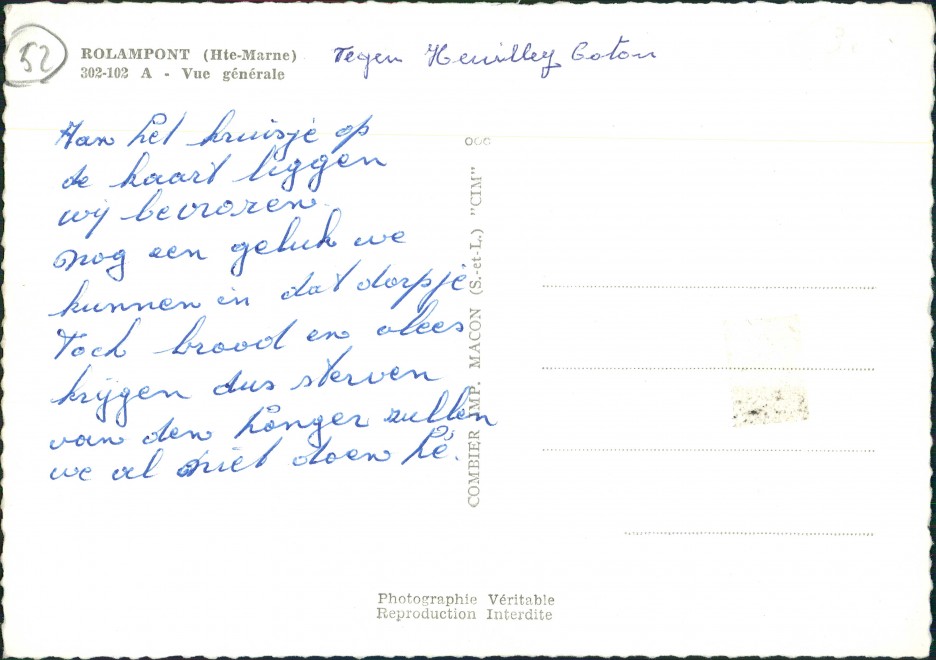 52
ROLAMPONT (Hte-Marne) Tegen Heuilley Coton
302-102 A - Vue générale
Aan het kruisje op
de kaart liggen
wij bevroren.
nog een geluk we
kunnen in dat dorpje
Toch brood en vlees
krijgen dus sterven
van den honger zullen
we al niet doen hé.
COMBIER IMP. MACON (S.-et-L.) "CIM"
Photographie Véritable
Reproduction Interdite